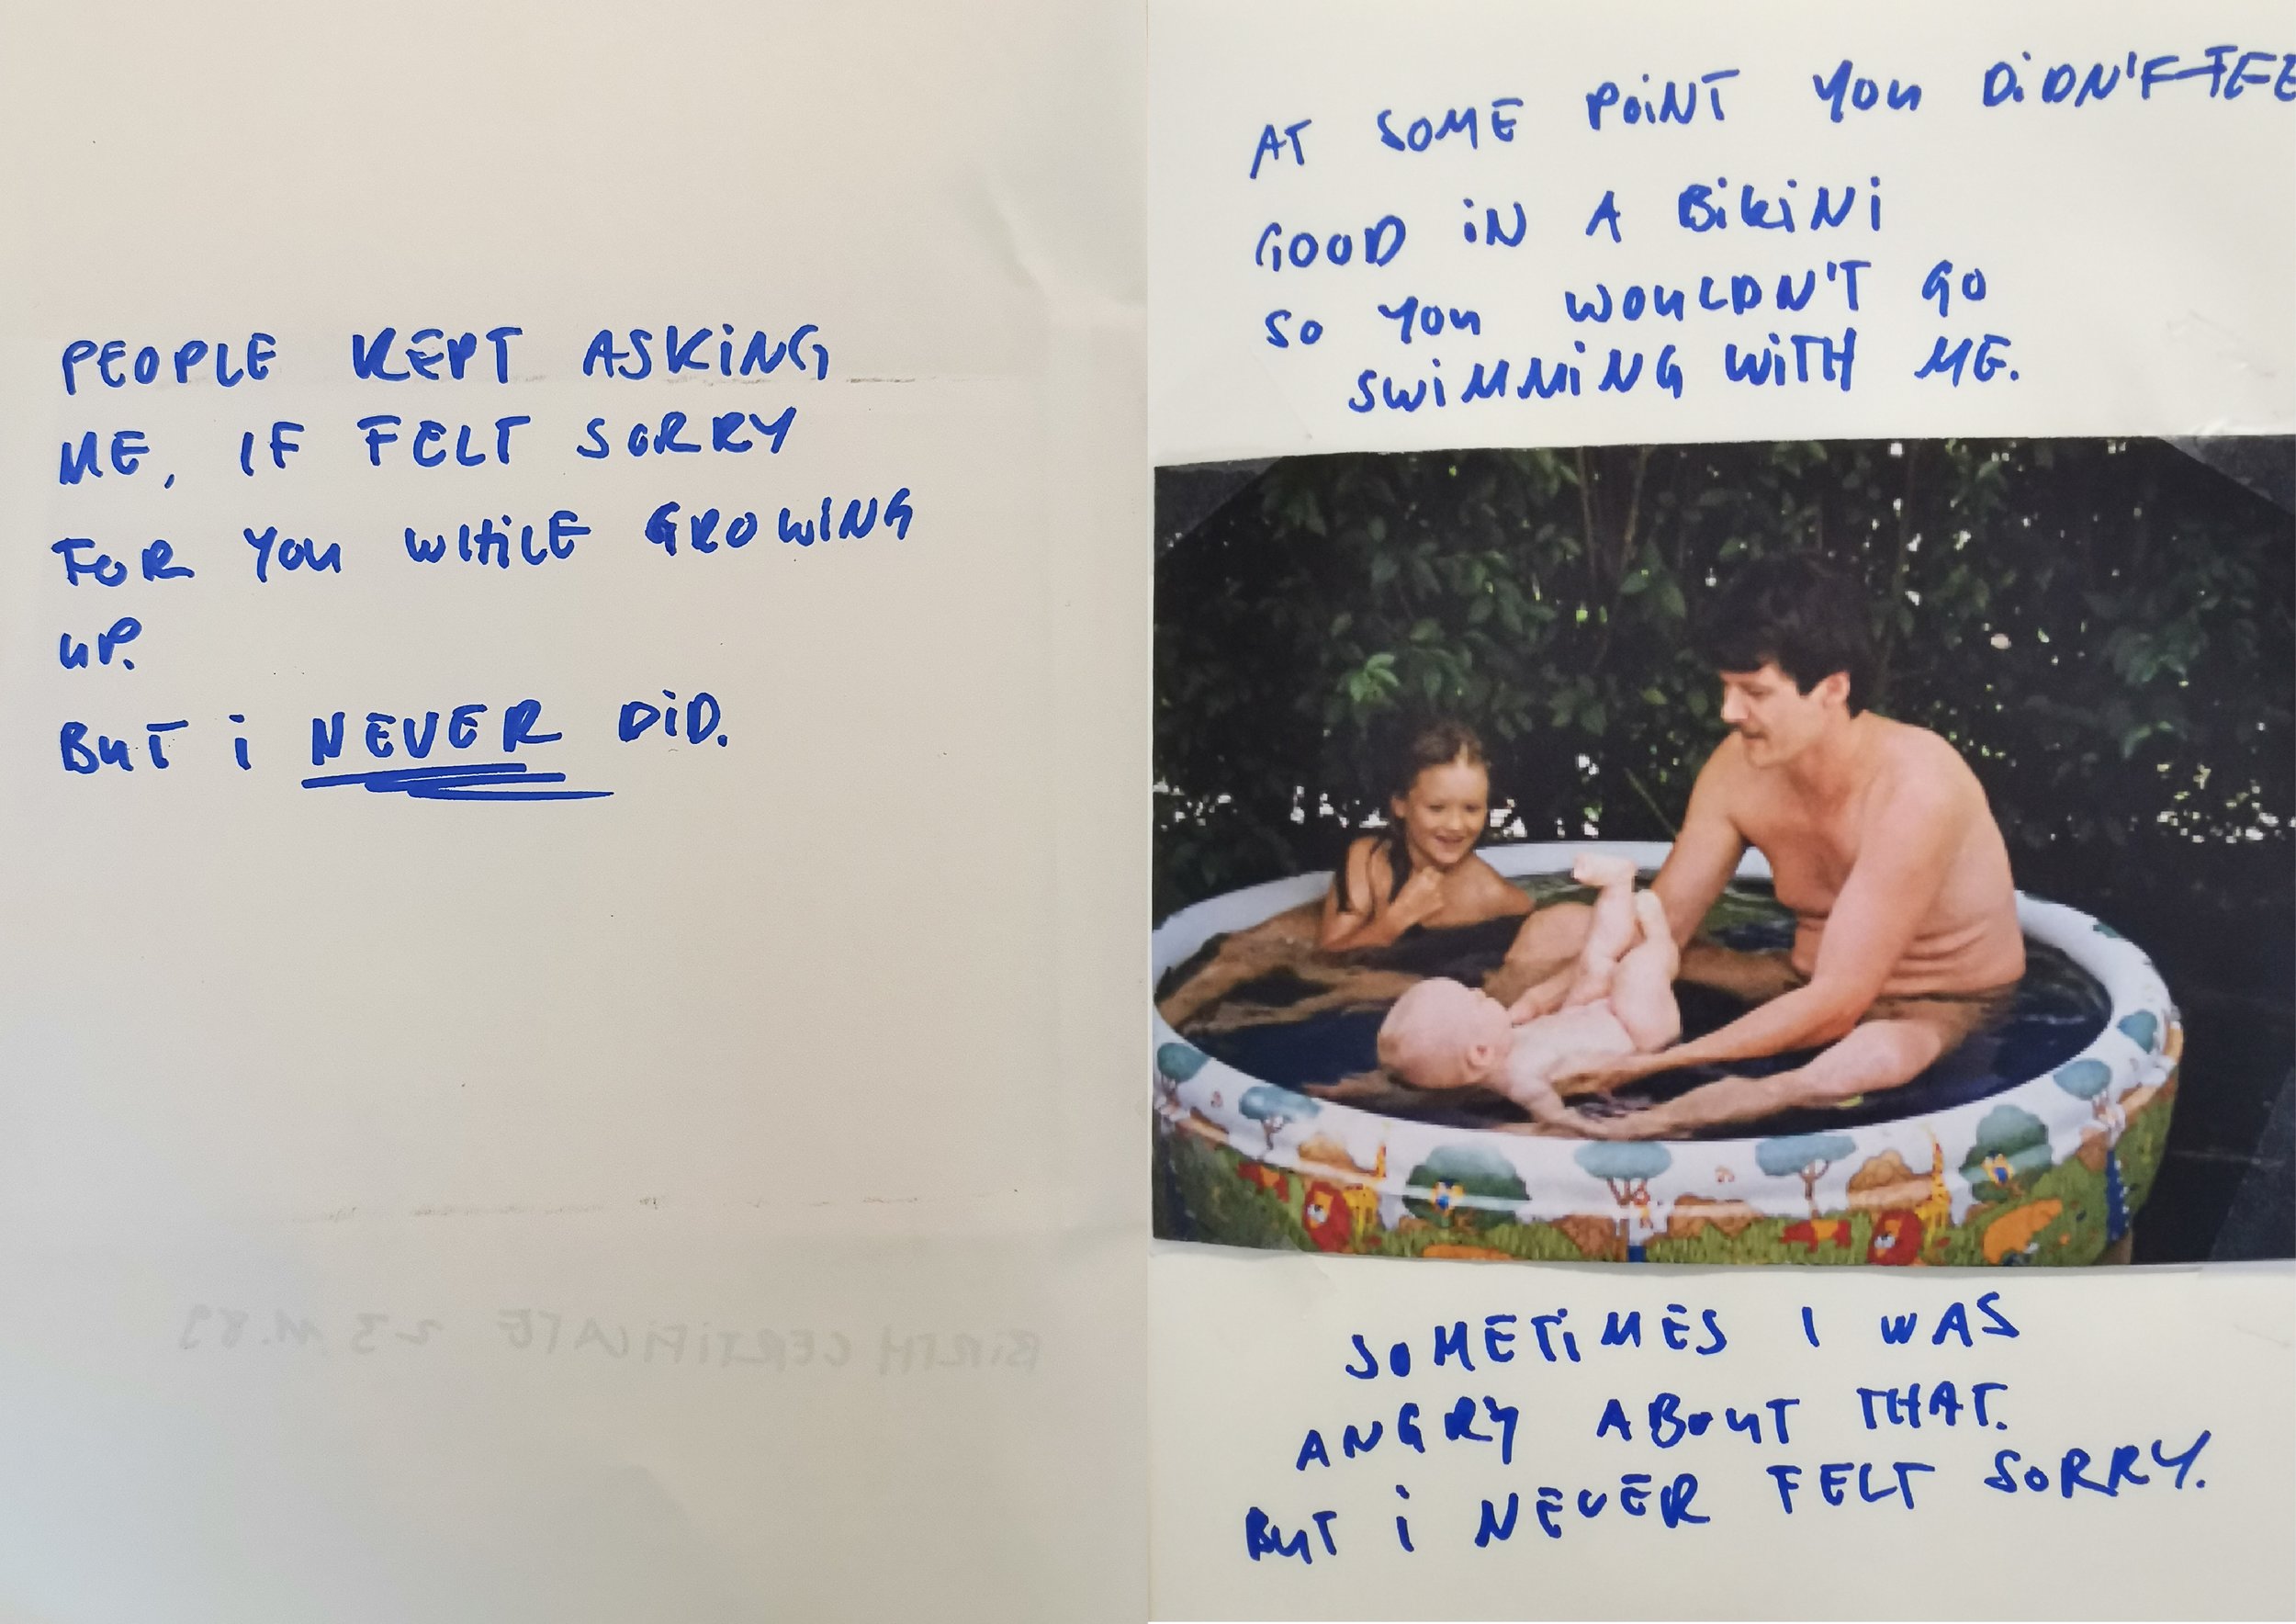 PEOPLE KEPT ASKING
ME, IF FELT SORRY
FOR YOU WHILE GROWING
UP.
BUT i NEVER DiD.
BIRTH CERTIFICATE 23.11.89
AT SOME POINT YOU DIDN'T FEE
GOOD IN A BIKINI
SO YOU WOULDN'T GO
SWIMMING WITH ME.
SOMETIMES I WAS
ANGRY ABOUT THAT.
BUT i NEVER FELT SORRY.